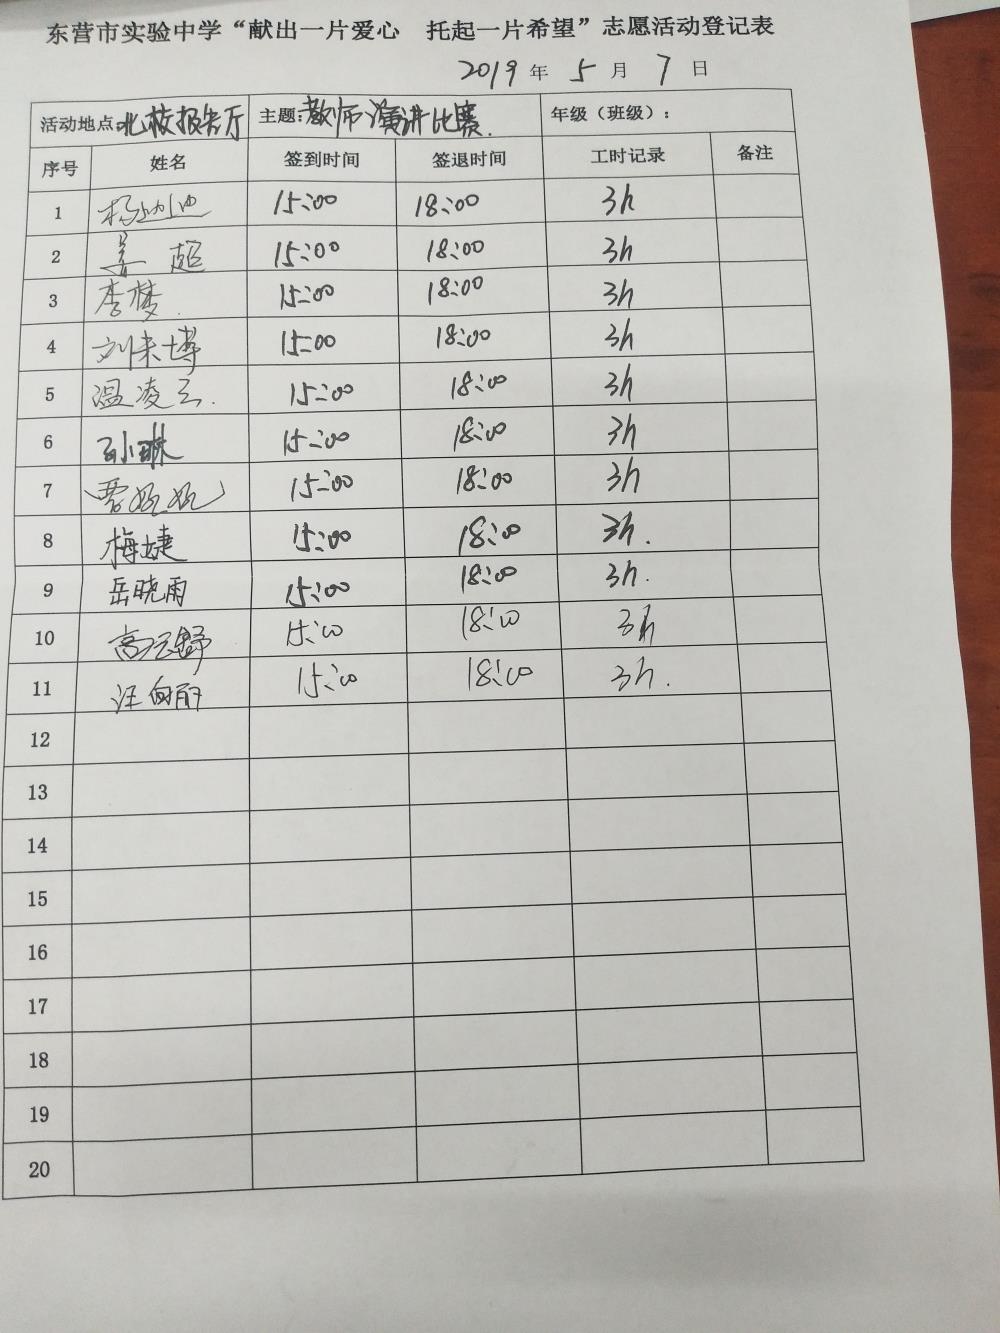 东营市实验中学“献出一片爱心　托起一片希望”志愿活动登记表
2019 年 5 月 7 日
活动地点:北校报告厅 主题:教师演讲比赛. 年级（班级）:
序号 姓名 签到时间 签退时间 工时记录 备注
1 15:00 18:00 3h
2 姜超 15:00 18:00 3h
3 李梦. 15:00 18:00 3h
4 刘来博 15:00 18:00 3h
5 温凌云. 15:00 18:00 3h
6 孙琳 15:00 18:00 3h
7 贾妮妮 15:00 18:00 3h
8 梅婕 15:00 18:00 3h.
9 岳晓雨 15:00 18:00 3h.
10 高云舒 15:00 18:00 3h
11 汪向丽 15:00 18:00 3h.
12
13
14
15
16
17
18
19
20